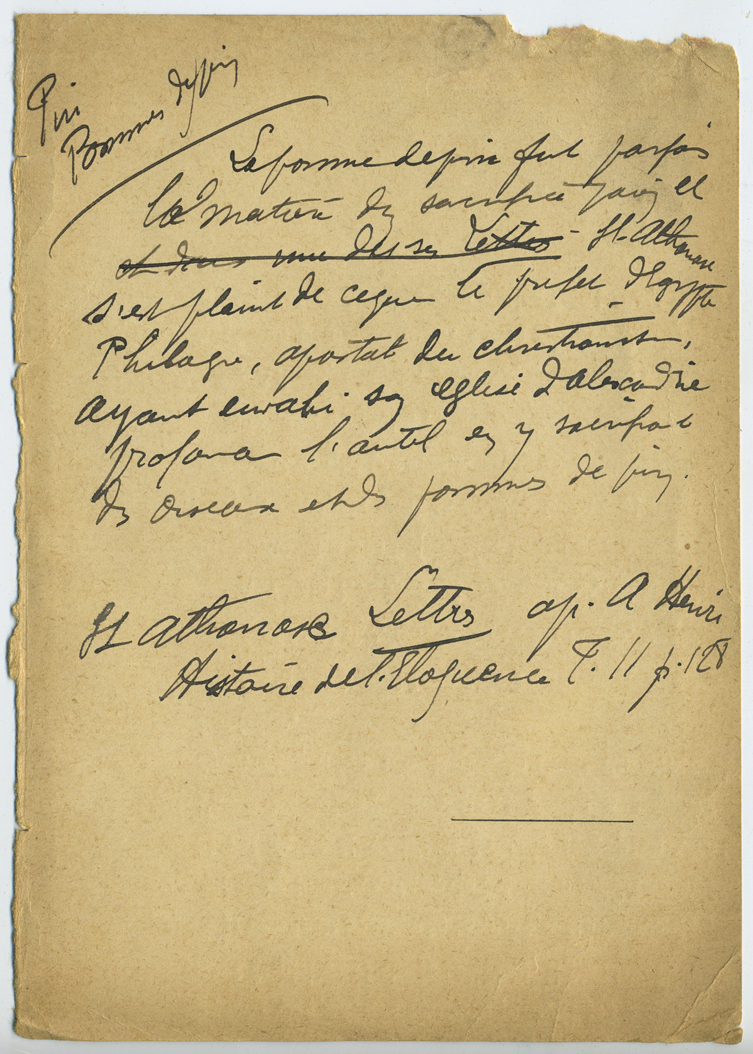 Pin
Pommes de pin
La pomme de pin fut parfois
la matière du sacrifice païen et
et dans une de ses Lettres - St Athanase
s'est plaint de ce que le préfet d'Egypte
Philagre, apostat du christianisme,
ayant envahi son église d'Alexandrie
profana l'autel en y sacrifiant
des oiseaux et des pommes de pin.
St Athanase Lettres ap. A Henri
Histoire de l'Eloquence T. II p. 128